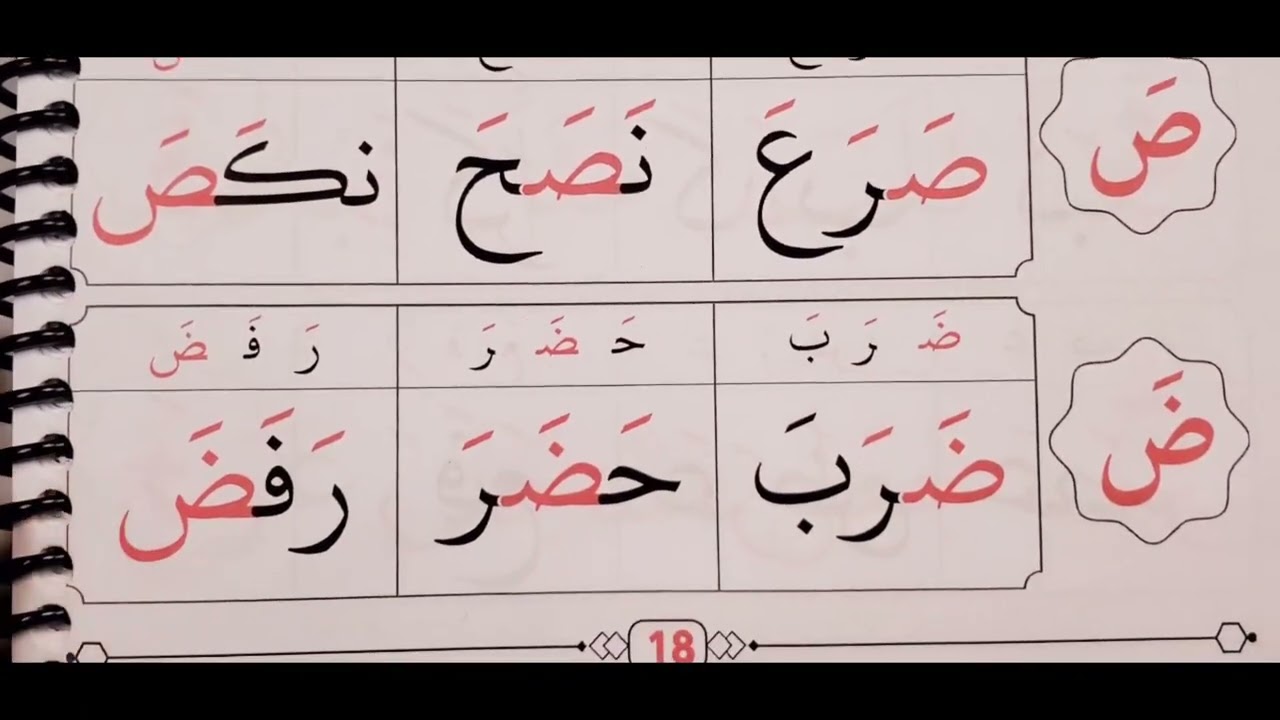 صَ
صَرَعَ نَصَحَ نكَصَ
ضَ رَ بَ حَ ضَ رَ رَ فَ ضَ
ضَ
ضَرَبَ حَضَرَ رَفَضَ
18